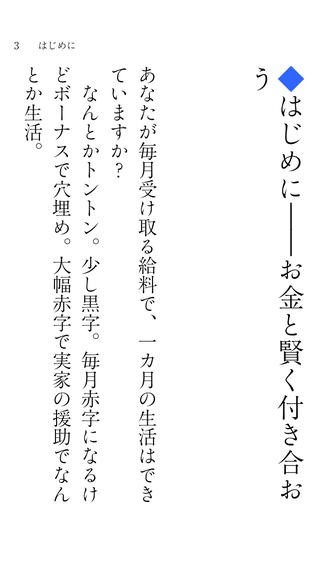 3 はじめに
◆はじめに――お金と賢く付き合お
う
あなたが毎月受け取る給料で、一カ月の生活はでき
ていますか？
なんとかトントン。少し黒字。毎月赤字になるけ
どボーナスで穴埋め。大幅赤字で実家の援助でなん
とか生活。